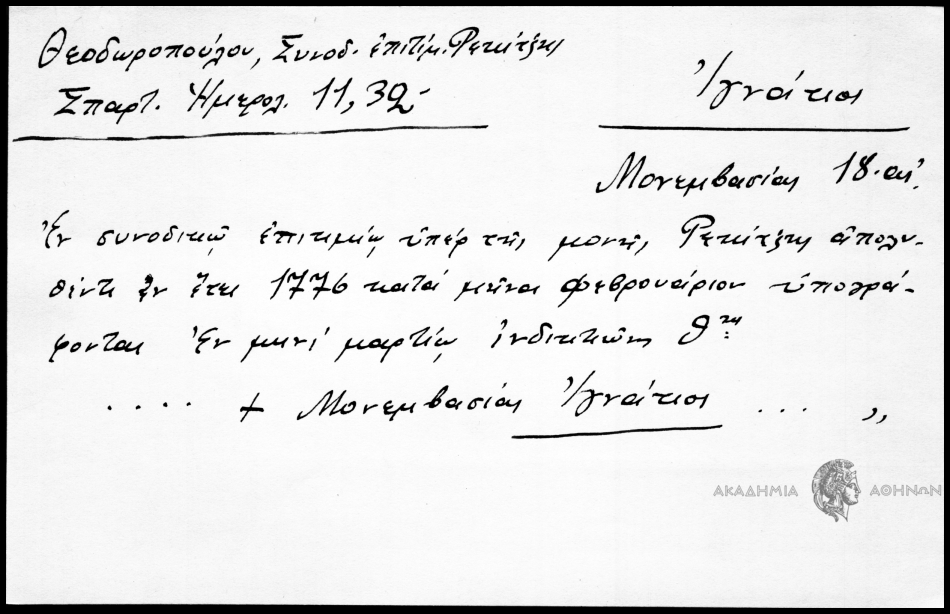 Θεοδωροπούλου, Συνοδ. ἐπιτίμ. Ρεκίτζης
Σπαρτ. Ἡμερολ. 11, 32
Ἰγνάτιος
Μονεμβασίας 18. αἰ.
Ἐν συνοδικῷ ἐπιτιμίῳ ὑπέρ τῆς μονῆς Ρεκίτζης ἀπολυ-
θέντι ἐν ἔτει 1776 κατά μῆνα φεβρουάριον ὑπογρά-
φονται Ἐν μηνί μαρτίῳ ἰνδικτιῶνος θ.ης
.... + Μονεμβασίας Ἰγνάτιος ... ,,
ΑΚΑΔΗΜΙΑ ΑΘΗΝΩΝ